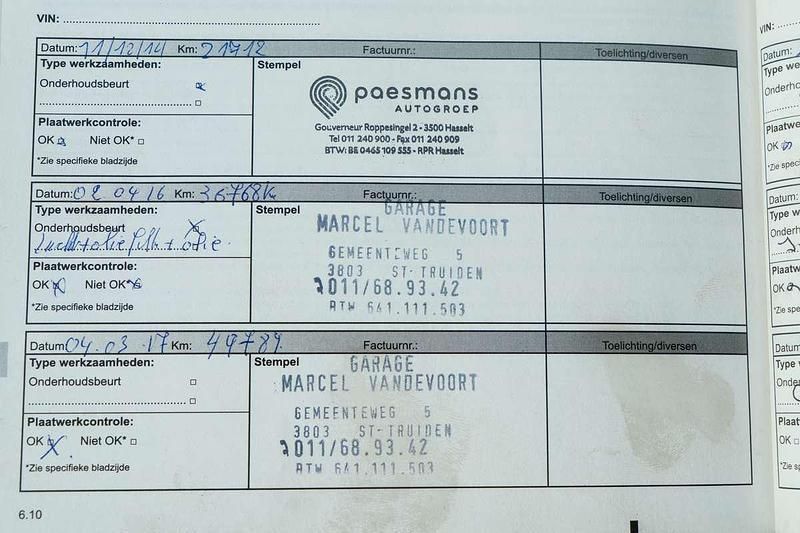 VIN:
Datum: 11/12/14 Km: 21712 Factuurnr.: Toelichting/diversen
Type werkzaamheden: Stempel
Onderhoudsbeurt
paesmans
AUTOGROEP
Plaatwerkcontrole:
OK Niet OK*
*Zie specifieke bladzijde
Gouverneur Roppesingel 2 - 3500 Hasselt
Tel 011 240 900 - Fax 011 240 909
BTW: BE 0465 109 555 - RPR Hasselt
Datum: 02 04 16 Km: 36768k Factuurnr.: Toelichting/diversen
Type werkzaamheden: Stempel
Onderhoudsbeurt
GARAGE
MARCEL VANDEVOORT
GEMEENTEWEG 5
3803 ST-TRUIDEN
011/68.93.42
BTW 641.111.503
Plaatwerkcontrole:
OK Niet OK*
*Zie specifieke bladzijde
Datum: 04.03.17 Km: 49789 Factuurnr.: Toelichting/diversen
Type werkzaamheden: Stempel
Onderhoudsbeurt
GARAGE
MARCEL VANDEVOORT
GEMEENTEWEG 5
3803 ST-TRUIDEN
011/68.93.42
BTW 641.111.503
Plaatwerkcontrole:
OK Niet OK*
*Zie specifieke bladzijde
6.10
VIN: